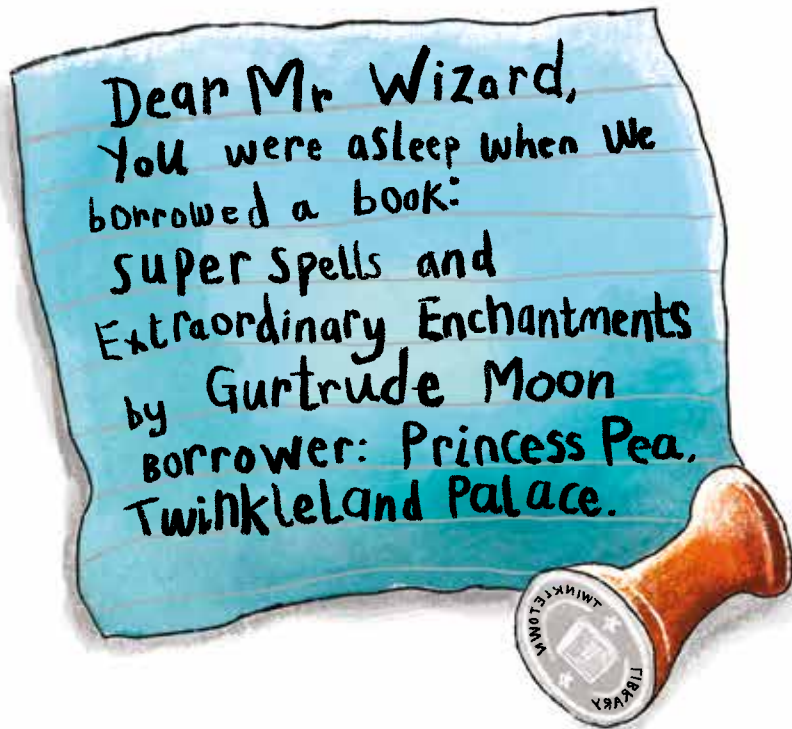 Dear Mr Wizard,
You were asleep when we
borrowed a book:
super spells and
Extraordinary Enchantments
by Gurtrude Moon
Borrower: Princess Pea.
Twinkleland Palace.
TWINKLETOWN
LIBRARY